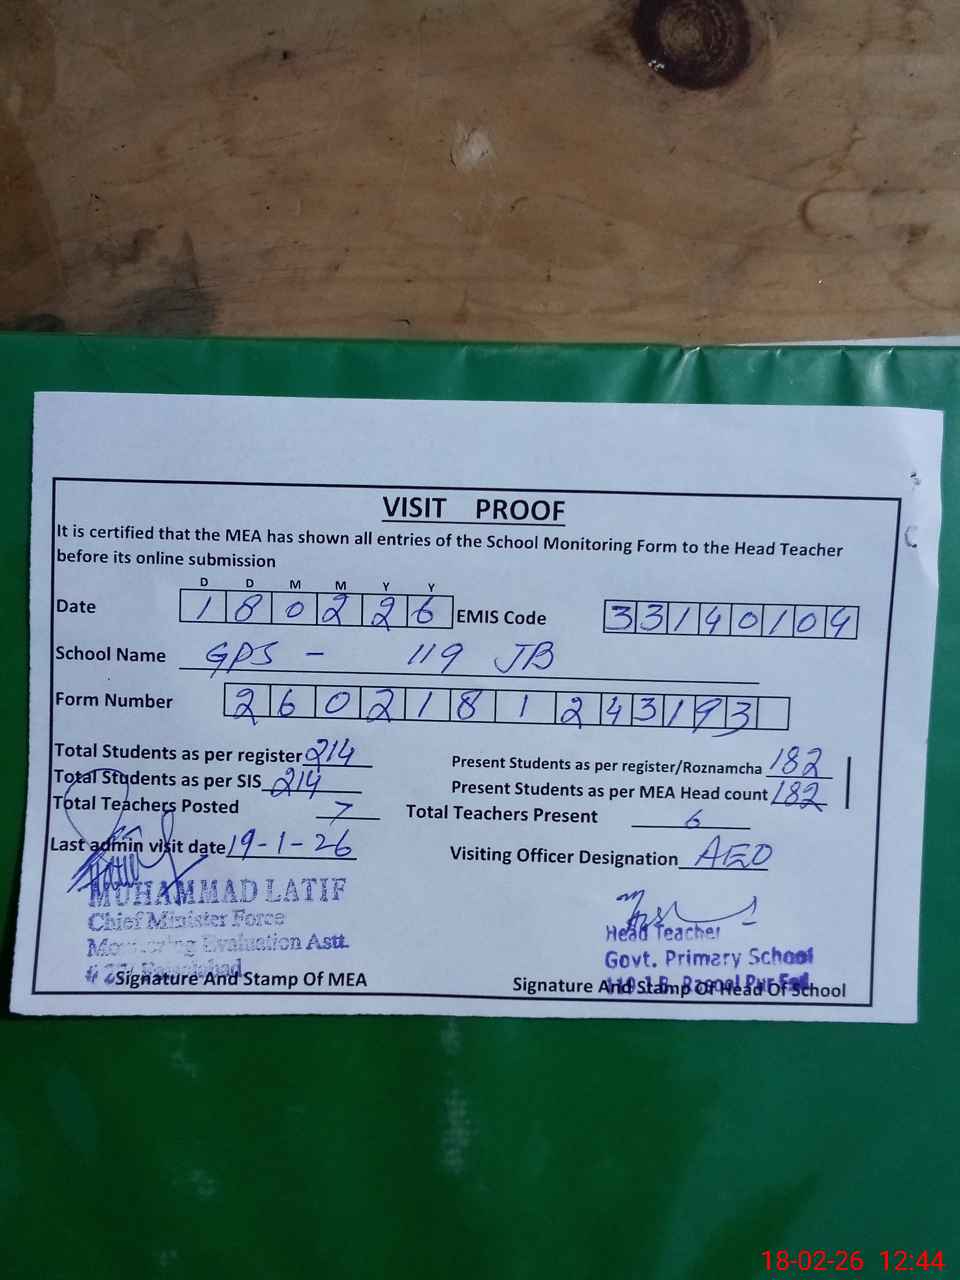 VISIT PROOF
It is certified that the MEA has shown all entries of the School Monitoring Form to the Head Teacher
before its online submission
D D M M Y Y
Date 180226 EMIS Code 33140104
School Name GPS - 119 JB
Form Number 2602181243193
Total Students as per register 214 Present Students as per register/Roznamcha 182
Total Students as per SIS 214 Present Students as per MEA Head count 182
Total Teachers Posted 7 Total Teachers Present 6
Last admin visit date 19-1-26 Visiting Officer Designation AEO
MUHAMMAD LATIF
Chief Minister Force
Monitoring Evaluation Astt.
Faisalabad
Signature And Stamp Of MEA
Head Teacher
Govt. Primary School
119 J.B. Rasool Pur Fsd
Signature And Stamp Of Head Of School
18-02-26 12:44